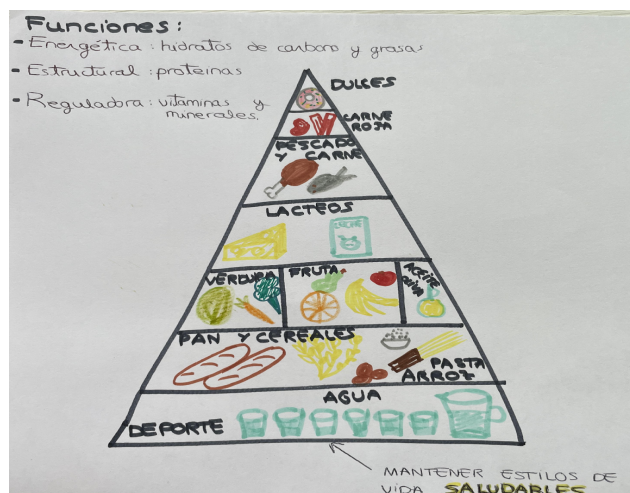 Funciones:
- Energética: hidratos de carbono y grasas
- Estructural: proteinas
- Reguladora: vitaminas y
minerales.
DULCES
CARNE
ROJA
PESCADO
Y CARNE
LACTEOS
LECHE
VERDURA
FRUTA
ACEITE
oliva
PAN Y CEREALES
PASTA
ARROZ
AGUA
DEPORTE
MANTENER ESTILOS DE
VIDA SALUDABLES